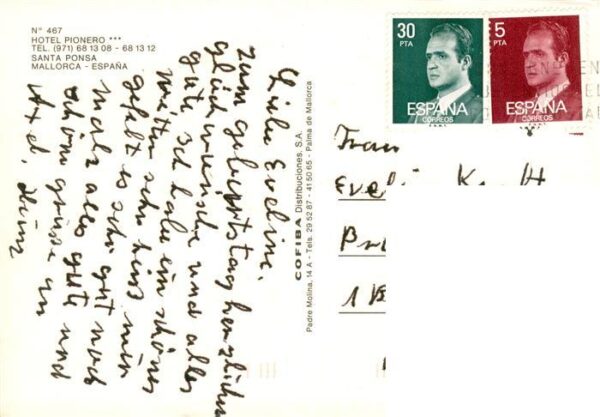 N° 467
HOTEL PIONERO ***
TEL. (971) 68 13 08 - 68 13 12
SANTA PONSA
MALLORCA - ESPAÑA
Liebe Eveline,
zum geburtstag herzlichen
glückwünsche und alles
gute, ich habe ein schönes
Wetter sehr heiss mir
gefält es sehr gut noch
mals alles gute und
schöne grüsse an
Axel, Heinz
COFIBA Distribuciones, S.A.
Padre Molina, 14 A - Tels. 29 52 87 - 41 50 65 - Palma de Mallorca
30
PTA
ESPAÑA
CORREOS
5
PTA
ESPAÑA
CORREOS
Frau